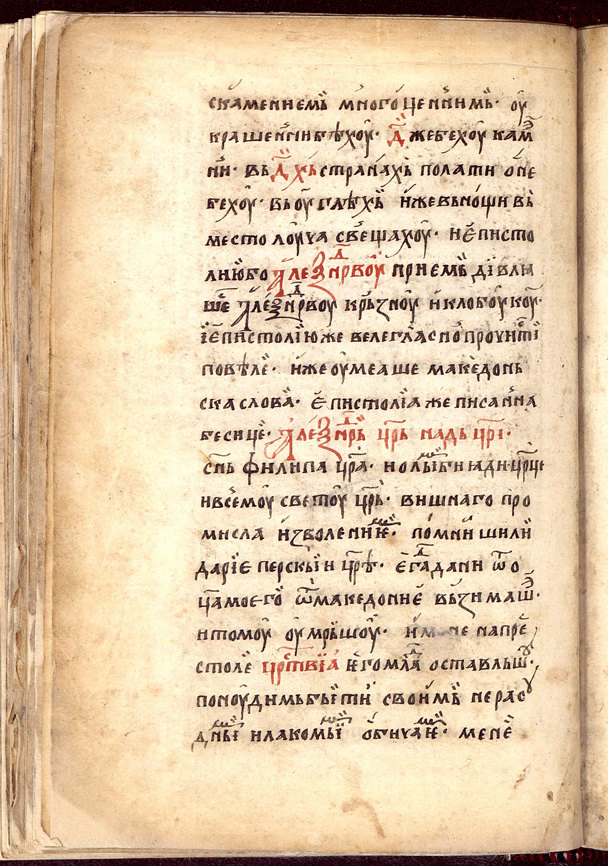 скамениемь многоценнимь· оу
крашенни бѣхоу· д҃ же бехоу кам
ни· вь д҃хь странахь полати оне
бехоу· вь оуглѣхь иже вь нощи вь
место лоуча свещахоу· и еписто
лию бо алеѯⷣнрвоу приемь дївлꙗ
ше алеѯⷣнрвоу крьзноу и клобоукоу·
ї епистолїю же велегласно прочинтї
повѣле· иже оумеаше македонь
ска слова· епистолїа же писанна
бе сице· алеѯⷣнрь црь надь цри·
снь филипа цра· и ѡлꙑмпиади црце
и всемоу светоу црь· вишнаго про
мисла изволениꙗ· помниши ли
дарїе перскїи црѣ· егда
ца моего ѿ македоние вьзимаш·
и томоу оумрьшоу· напре
столе црⷭтвїа ѥго млⷣа оставльш·
поноуди своимь нерас
и лакомꙑї обичаѥ· мене